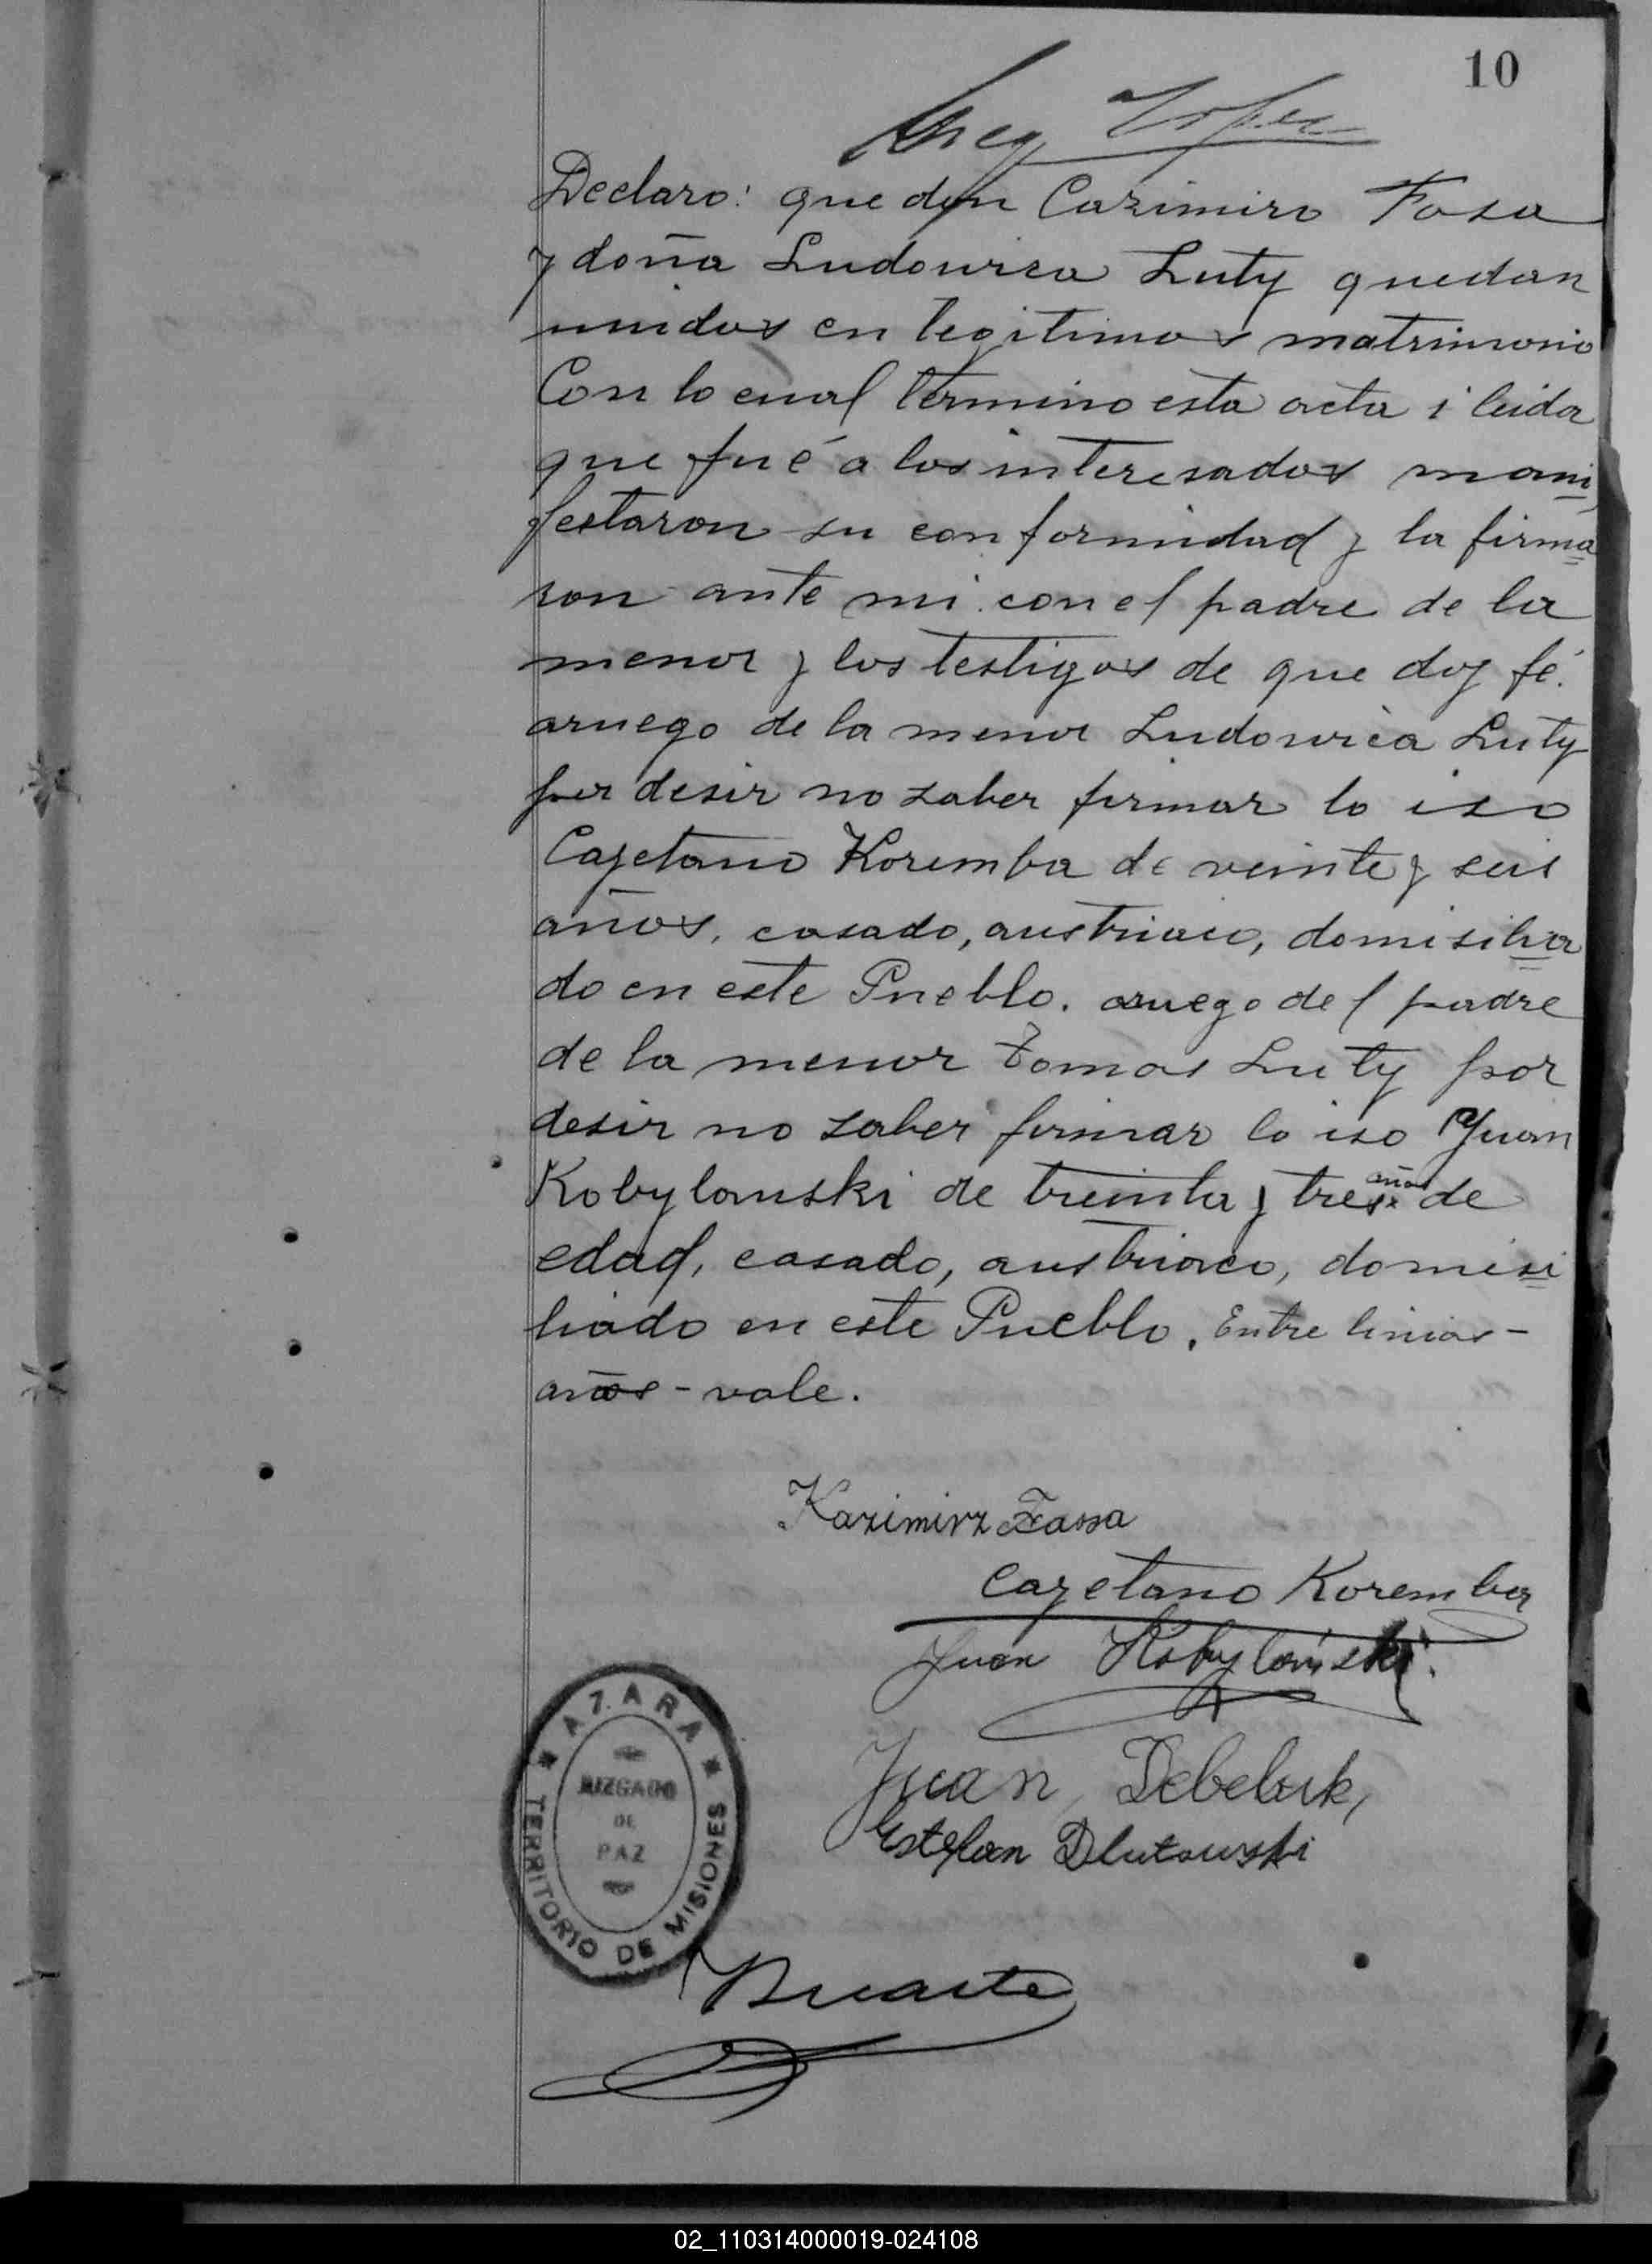 10
Greg Lopez
Declaro: que don Cazimiro Fosa
y doña Ludowica Luty quedan
unidos en legitimos matrimonio
Con lo cual termino esta acta i leida
que fué a los interesados mani
festaron su conformidad y la firma
ron ante mi con el padre de la
menor y los testigos de que doy fé.
aruego de la menor Ludowica Luty
por desir no saber firmar lo iso
Cayetano Koremba de veinte y seis
años, casado, austriaco, domisilia
do en este Pueblo. aruego del padre
de la menor Tomas Luty por
desir no saber firmar lo iso Juan
Kobylanski de treinta y tres años de
edad, casado, austriaco, domisi
liado en este Pueblo. Entre linias -
años - vale.
Kazimirz Fassa
Cayetano Koremba
Juan Kobylański.
Juan Debeluk,
Estefan Dlutowski
* AZARA *
JUZGADO
DE
PAZ
TERRITORIO DE MISIONES
Duarte
02_110314000019-024108